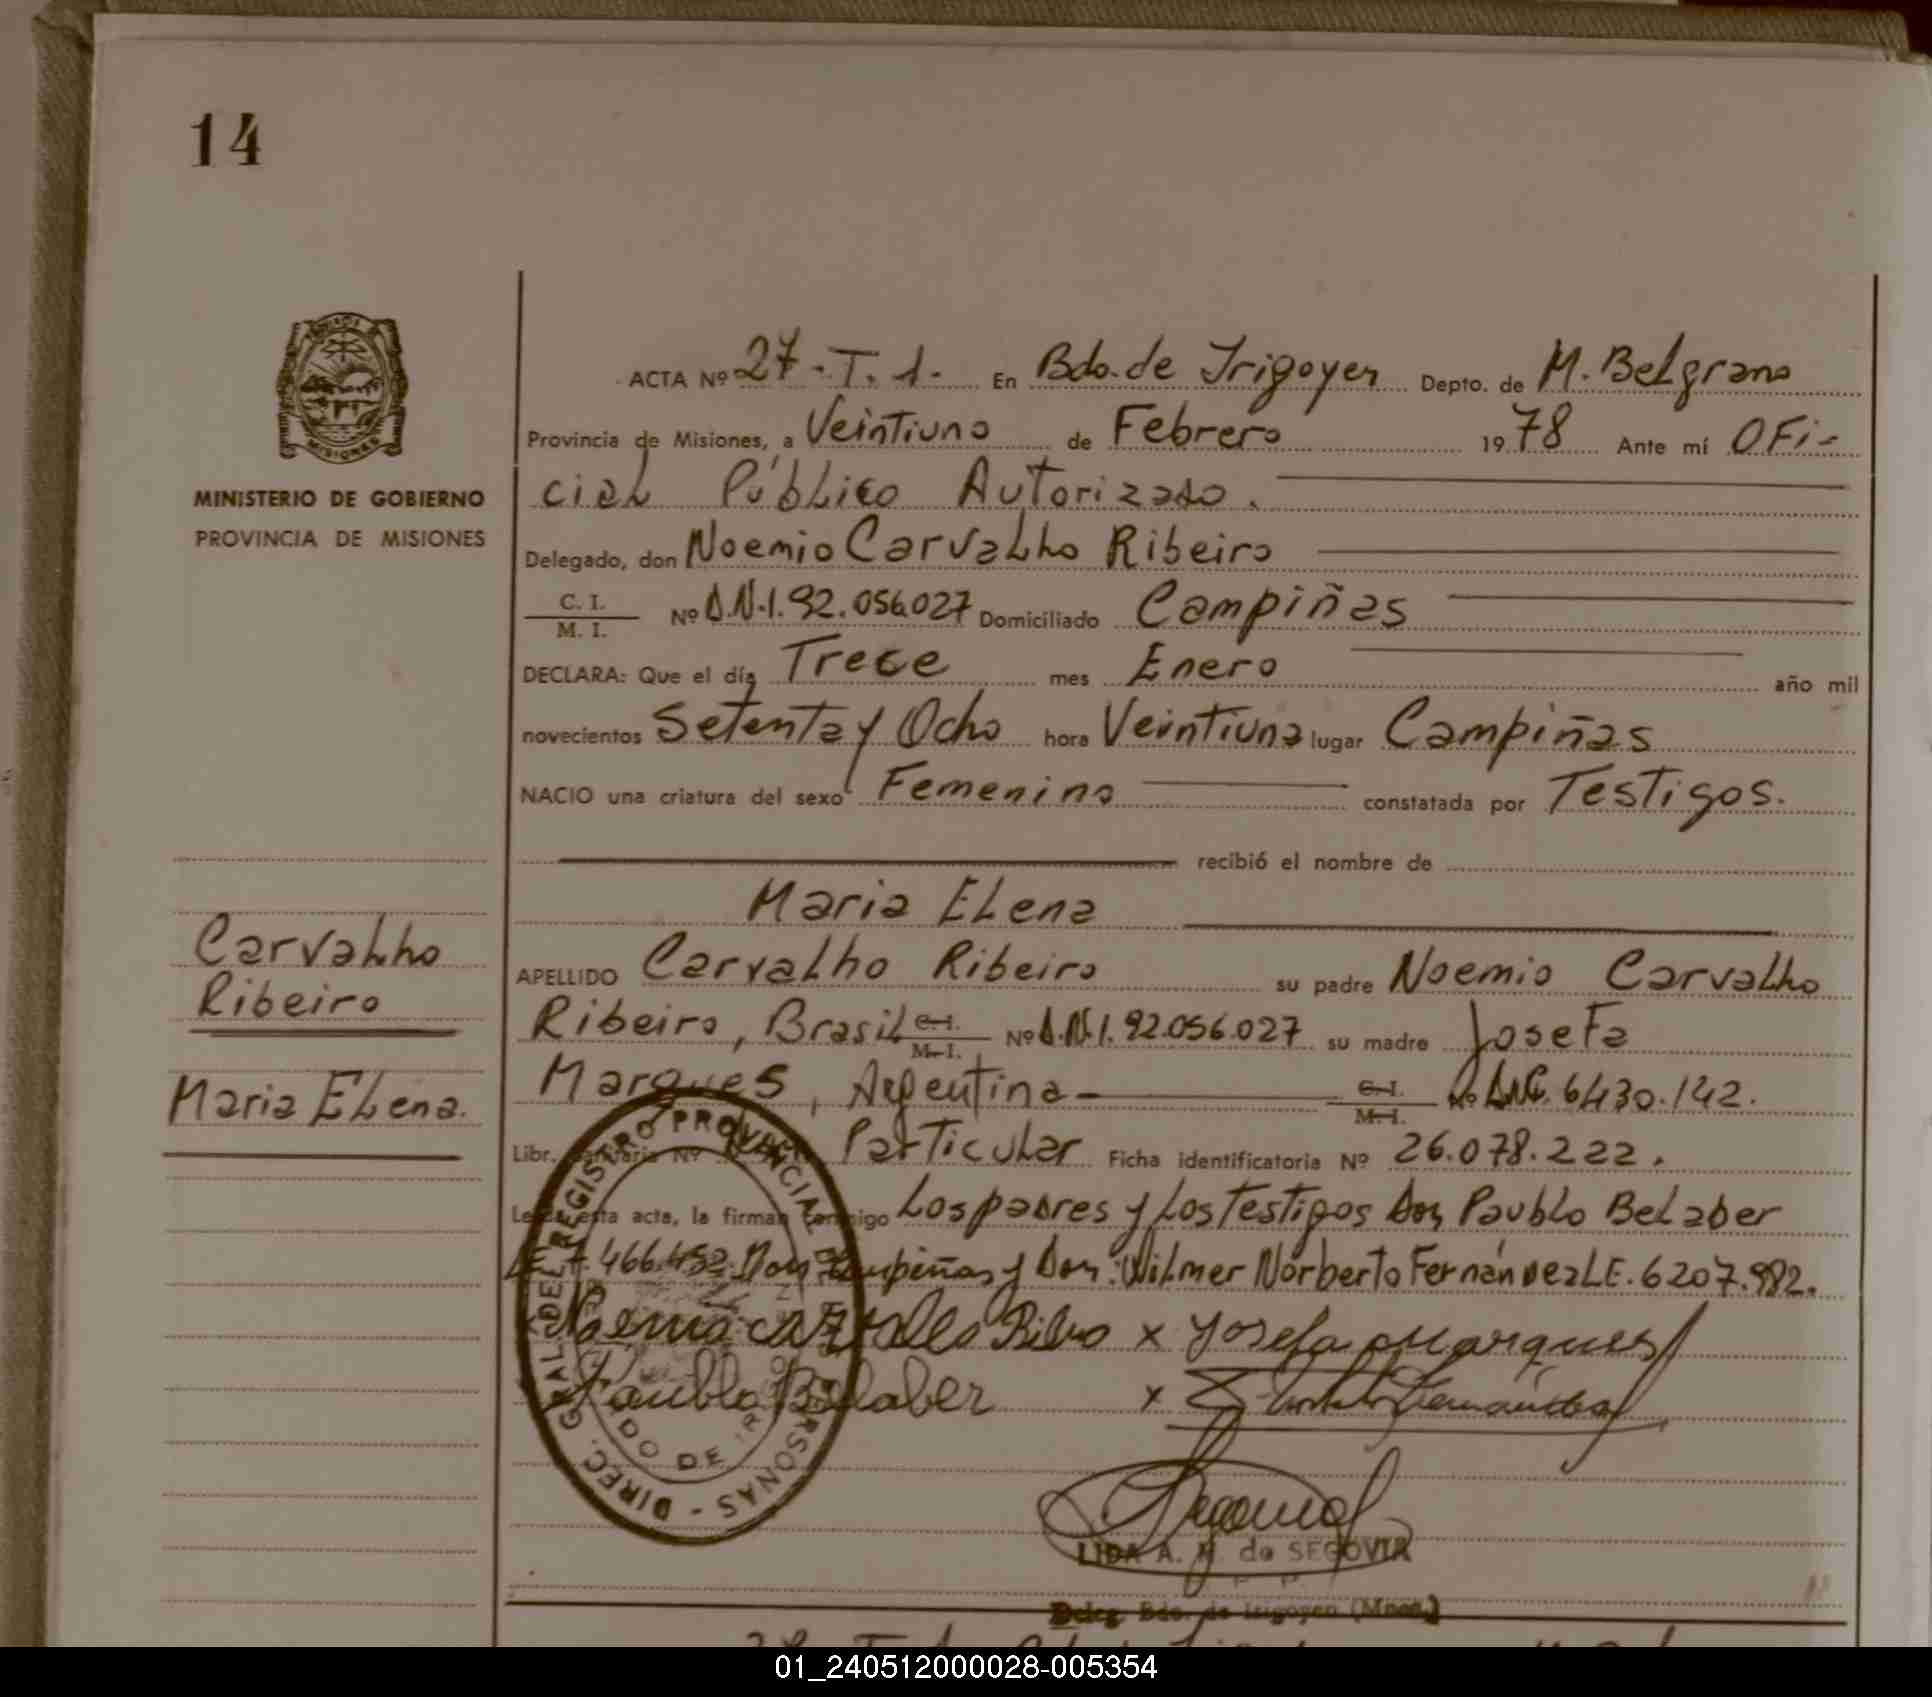 14
ACTA Nº 27-T.1. En Bdo. de Irigoyen Depto. de M. Belgrano
Provincia de Misiones, a Veintiuno de Febrero 1978 Ante mí Ofi-
cial Público Autorizado.
MINISTERIO DE GOBIERNO
PROVINCIA DE MISIONES
Delegado, don Noemio Carvalho Ribeiro
C. I.
M. I.
Nº D.N.I. 92.056.027 Domiciliado Campiñas
DECLARA: Que el día Trece mes Enero año mil
novecientos Setenta y Ocho hora Veintiuna lugar Campiñas
NACIO una criatura del sexo Femenino constatada por Testigos.
recibió el nombre de
Maria Elena
Carvalho
Ribeiro
Maria Elena.
APELLIDO Carvalho Ribeiro su padre Noemio Carvalho
Ribeiro, Brasil C. I. M. I. Nº D.N.I. 92.056.027 su madre Josefa
Marques, Argentina C. I. M. I. Nº D.N.I. 6430.142.
Libr. Sanitaria Nº Particular Ficha identificatoria Nº 26.078.222.
Leída esta acta, la firman conmigo Los padres y Los Testigos Don Paublo Belaber
466.452 Dom Campiñas y Don: Wilmer Norberto Fernández L.E. 6207.982.
Noemio Carvallo Ribro x Yosefa Marques
Paublo Belaber x Fernández
DIREC. GRAL. DEL REGISTRO PROVINCIAL DE PERSONAS
BDO DE IR
LIDA A. N. de SEGOVIA
Deleg. Bdo. de Irigoyen (Mnes.)
01_240512000028-005354